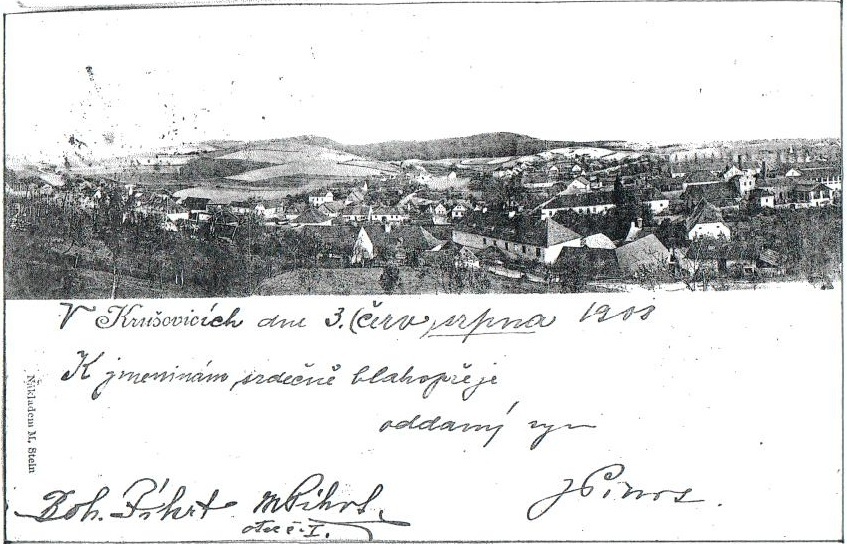 V Krušovicích dne 3. (červ. srpna 1908
K jmeninám srdečně blahopřeje
oddaný syn
Nákladem M. Stein
Boh. Fíhrt
otec č. I.